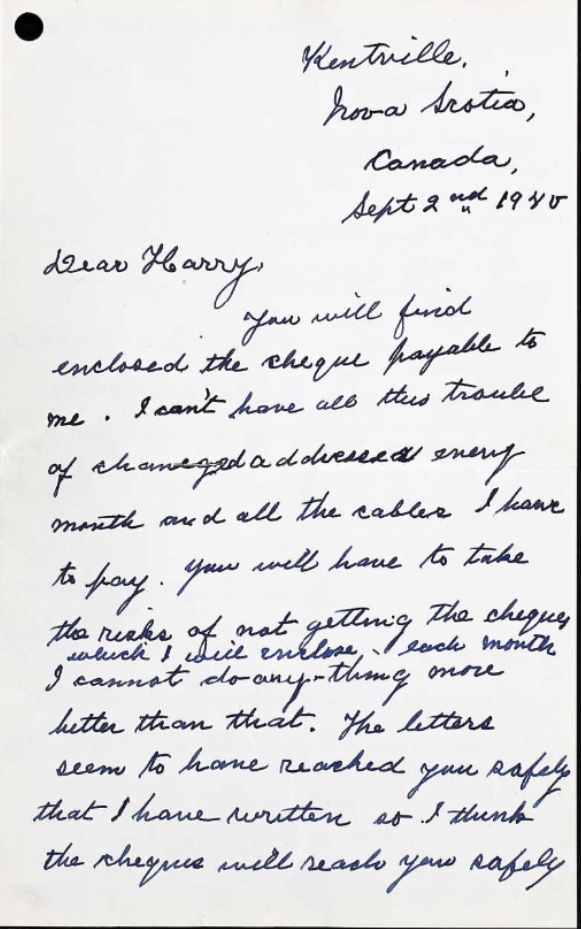 Kentville,
Nova Scotia,
Canada,
Sept 2nd 1940
Dear Harry,
You will find
enclosed the cheque payable to
me. I can't have all this trouble
of changed addresses every
month and all the cables I have
to pay. You will have to take
the risks of not getting the cheques
which I will enclose, each month
I cannot do any-thing more
better than that. The letters
seem to have reached you safely
that I have written so I think
the cheques will reach you safely